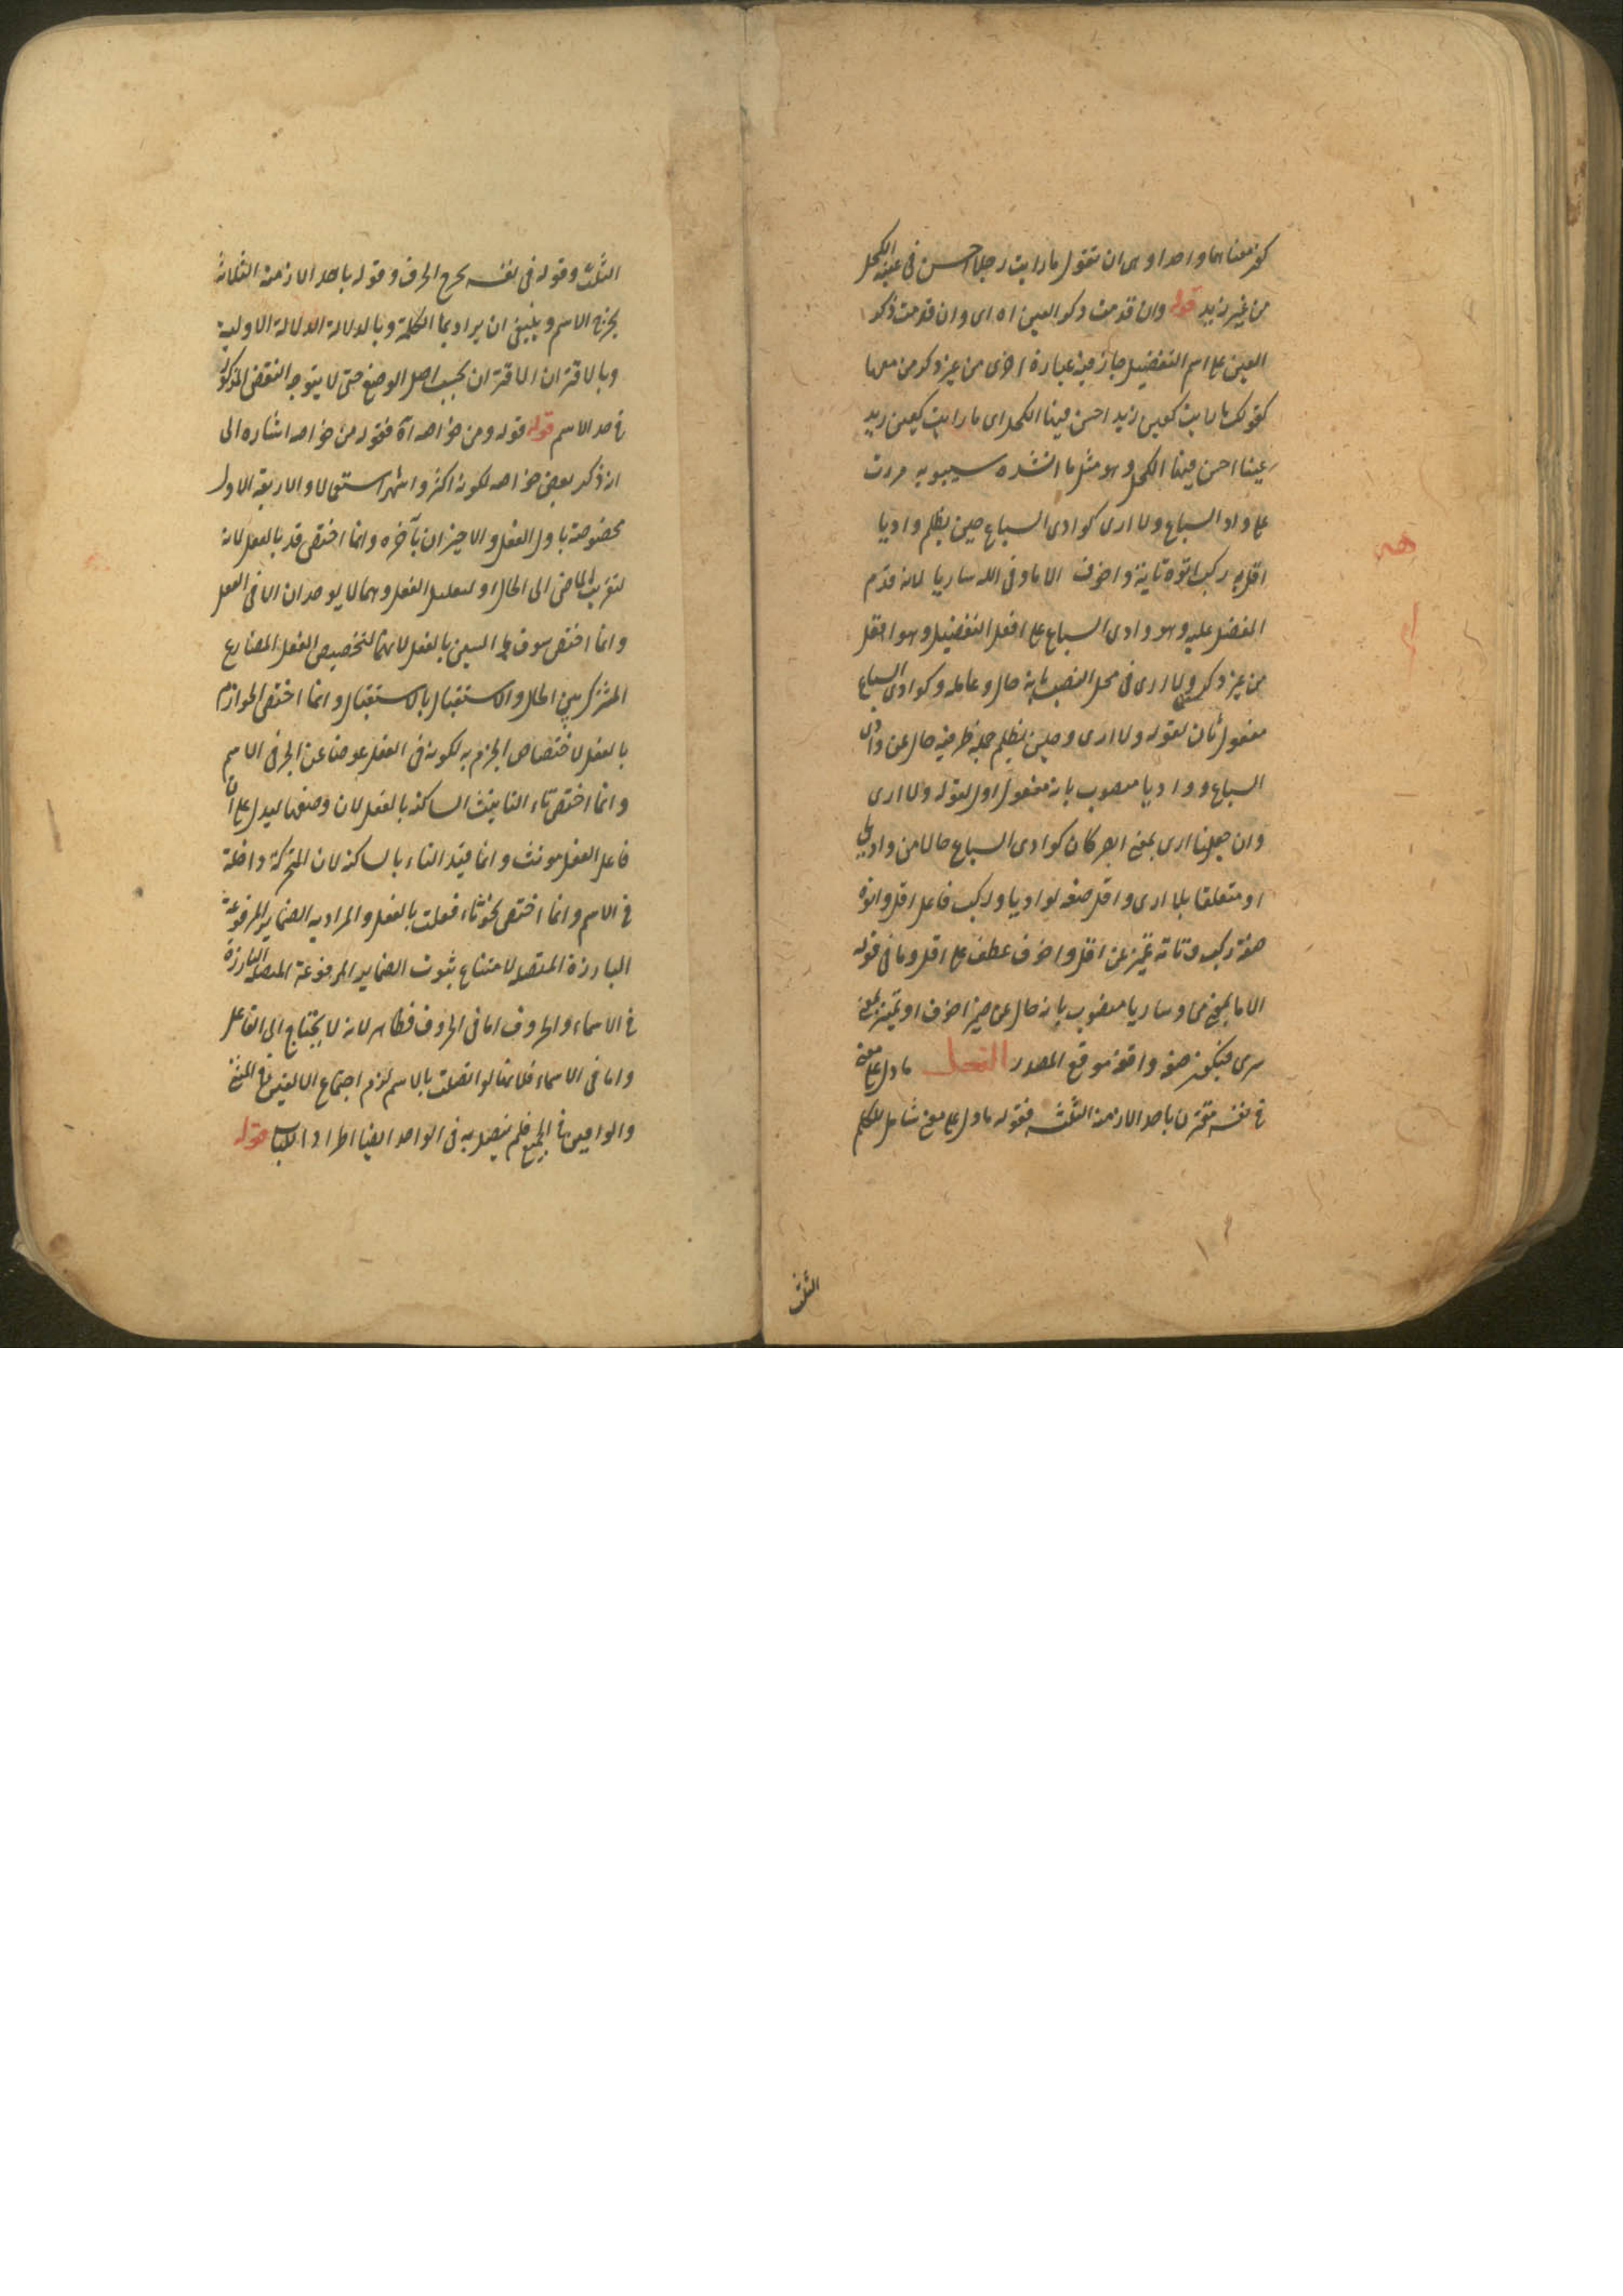 كون معناهما واحدا وهى ان تقول ما رايت رجلا احسن فى عينه الكحل
من عين زيد قوله وان قدمت ذكر العين اه اى وان قدمت ذكر
العين على اسم التفضيل جاز فيه عبارة اخرى من غير ذكر من معها
كقولك ما رايت كعين زيد احسن فيها الكحل اى ما رايت كعين زيد
عينا احسن فيها الكحل وهو مثل ما انشده سيبويه مررت
على واد السباع ولا ارى كوادى السباع حين يظلم واديا
اقل به ركب اتوه تاية واخوف الا ما وقى الله ساريا لانه قدم
المفضل عليه وهو وادى السباع على افعل التفضيل وهو اقل
من غير ذكر ولا ارى فى محل النصب بانه حال و عامله وكوادى السباع
مفعول ثان لقوله ولا ارى وحين يظلم جملة ظرفية حال عن وادى
السباع وواديا منصوب بانه مفعول اول لقوله ولا ارى
وان جعلنا ارى بمعنى ابصر كان كوادى السباع حالا من واديا
او متعلقا بلا ارى واقل صفة لواديا وركب فاعل اقل واتوه
صفة ركب وتاية تميز عن اقل واخوف عطف على اقل وما فى قوله
الا ما بمعنى من وساريا منصوب بانه حال عن ضمير اخوف او تميز بمعنى
سرى فيكون صفة واقعة موقع المصدر الفعل ما دل على معنى
فى نفسه مقترن باحد الازمنة الثلثه فقوله ما دل على معنى شامل للكلم
الثلث
الثلث وقوله فى نفسه يخرج الحرف وقوله باحد الازمنة الثلاثة
يخرج الاسم وينبغى ان يراد بما الكلمة وبالدلالة الدلالة الاولية
وبالاقتران الاقتران بحسب اصل الوضع حتى لا يتوجه النقض المذكور
فى حد الاسم قوله قوله ومن خواصه اه فقوله من خواصه اشاره الى
انه ذكر بعض خواصه لكونه اكثر واشهر استعمالا والاربعة الاول
مخصوصة باول الفعل والاخيران بآخره وانما اختص قد بالفعل لانه
لتقريب الماضى الى الحال او لتعليل الفعل وهما لا يوجدان الا فى الفعل
وانما اختص سوف و السين بالفعل لانهما لتخصيص الفعل المضارع
المشترك بين الحال والاستقبال بالاستقبال وانما اختص الجوازم
بالفعل لاختصاص الجزم به لكونه فى الفعل عوضا عن الجر فى الاسم
وانما اختص تاء التانيث الساكنة بالفعل لان وضعها ليدل على ان
فاعل الفعل مونث وانما قيد التاء بالساكنة لان المتحركة داخلة
فى الاسم وانما اختص نحو تاء فعلت بالفعل والمراد به الضماير المرفوعة
البارزة المتصلة لامتناع ثبوت الضماير المرفوعة المتصلة البارزة
فى الاسماء والحروف اما فى الحروف فظاهر لانه لا يحتاج الى الفاعل
واما فى الاسماء فلانها لو اتصلت بالاسم لزم اجتماع الالفين فى المثنى
والواوين فى الجمع فلم يتصل به فى الواحد ايضا اطرادا للباب قوله